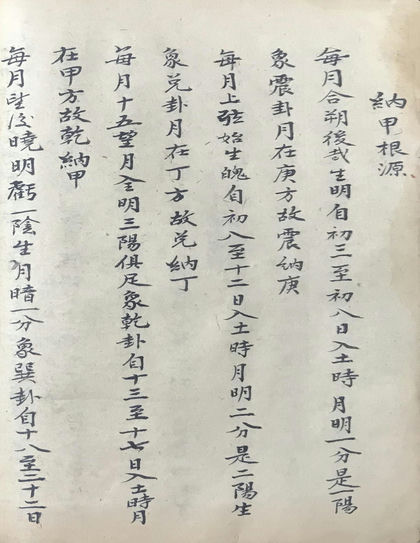 納甲根源
每月合朔後哉生明自初三至初八日入土時月明一分是一陽
象震卦月在庚方故震納庚
每月上弦始生魄自初八至十二日入土時月明二分是二陽生
象兌卦月在丁方故兌納丁
每月十五望月全明三陽俱足象乾卦自十三至十七日入土時月
在甲方故乾納甲
每月望後曉明虧一陰生月暗一分象巽卦自十八至二十二日